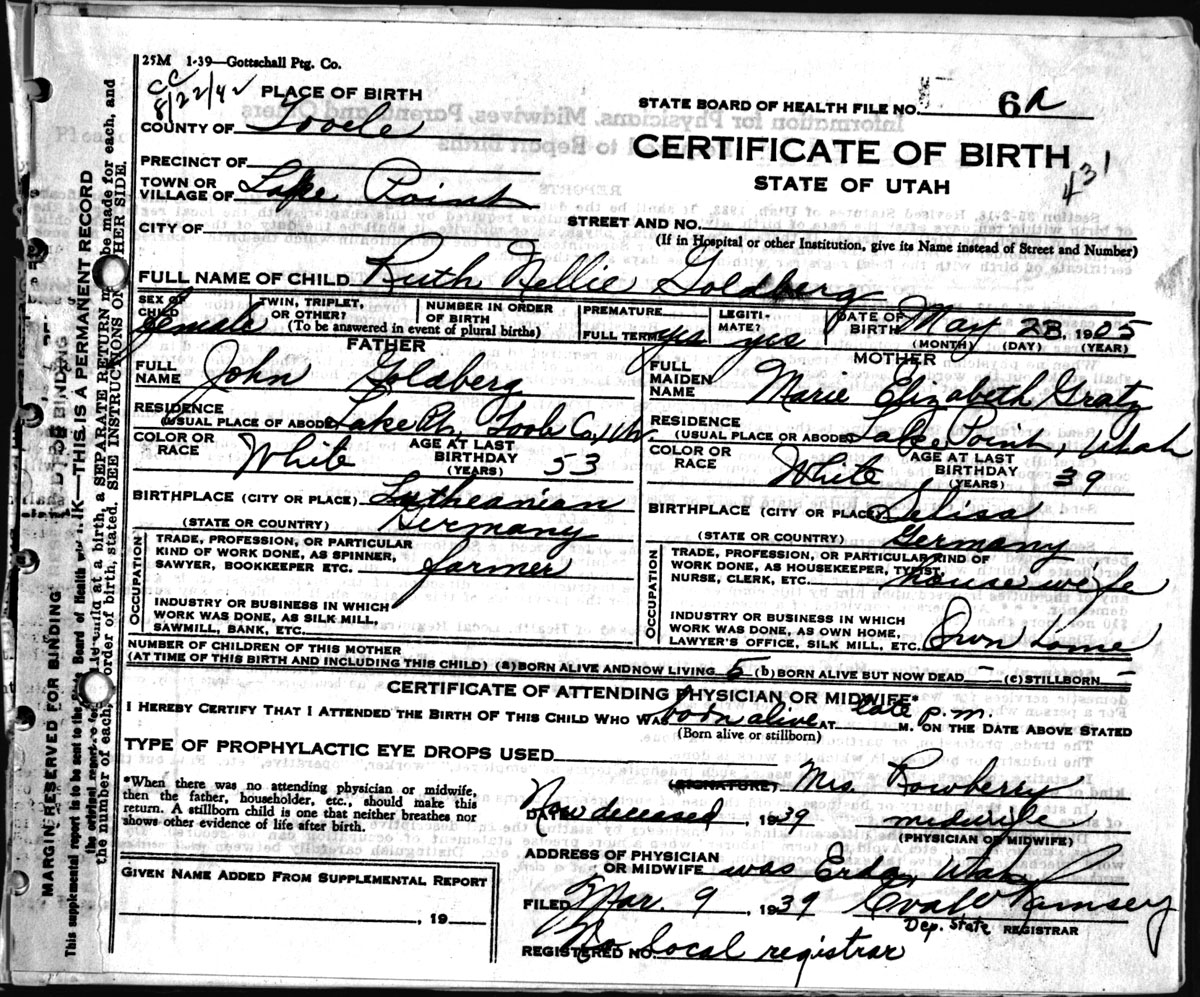 25M 1-39—Gottschall Ptg. Co.
CC
8/22/42
PLACE OF BIRTH
STATE BOARD OF HEALTH FILE NO. 6a
COUNTY OF Tooele
CERTIFICATE OF BIRTH
431
STATE OF UTAH
PRECINCT OF
TOWN OR
VILLAGE OF Lake Point
STREET AND NO.
(If in Hospital or other Institution, give its Name instead of Street and Number)
CITY OF
FULL NAME OF CHILD Ruth Nellie Goldberg
SEX OF CHILD female
TWIN, TRIPLET, OR OTHER?
NUMBER IN ORDER OF BIRTH
(To be answered in event of plural births)
PREMATURE
FULL TERM yes
LEGITIMATE? yes
DATE OF BIRTH May 23 1905
(MONTH) (DAY) (YEAR)
FATHER
FULL NAME John Goldberg
RESIDENCE
(USUAL PLACE OF ABODE) Lake Pt. Toole Co., Ut.
COLOR OR RACE White
AGE AT LAST BIRTHDAY (YEARS) 53
BIRTHPLACE (CITY OR PLACE) Lutheanian
(STATE OR COUNTRY) Germany
OCCUPATION
TRADE, PROFESSION, OR PARTICULAR
KIND OF WORK DONE, AS SPINNER,
SAWYER, BOOKKEEPER ETC. farmer
INDUSTRY OR BUSINESS IN WHICH
WORK WAS DONE, AS SILK MILL,
SAWMILL, BANK, ETC.
MOTHER
FULL MAIDEN NAME Marie Elizabeth Gratz
RESIDENCE
(USUAL PLACE OF ABODE) Lake Point, Utah
COLOR OR RACE White
AGE AT LAST BIRTHDAY (YEARS) 39
BIRTHPLACE (CITY OR PLACE) Selisa
(STATE OR COUNTRY) Germany
OCCUPATION
TRADE, PROFESSION, OR PARTICULAR KIND OF
WORK DONE, AS HOUSEKEEPER, TYPIST,
NURSE, CLERK, ETC. house wife
INDUSTRY OR BUSINESS IN WHICH
WORK WAS DONE, AS OWN HOME,
LAWYER'S OFFICE, SILK MILL, ETC. Own home
NUMBER OF CHILDREN OF THIS MOTHER
(AT TIME OF THIS BIRTH AND INCLUDING THIS CHILD) (a) BORN ALIVE AND NOW LIVING 5 (b) BORN ALIVE BUT NOW DEAD – (c) STILLBORN –
CERTIFICATE OF ATTENDING PHYSICIAN OR MIDWIFE*
I HEREBY CERTIFY THAT I ATTENDED THE BIRTH OF THIS CHILD WHO WAS born alive AT late p.m. M. ON THE DATE ABOVE STATED
(Born alive or stillborn)
TYPE OF PROPHYLACTIC EYE DROPS USED
*When there was no attending physician or midwife,
then the father, householder, etc., should make this
return. A stillborn child is one that neither breathes nor
shows other evidence of life after birth.
(SIGNATURE) Mrs. Rowberry
DATE Now deceased, 1939 midwife
(PHYSICIAN OR MIDWIFE)
ADDRESS OF PHYSICIAN
OR MIDWIFE was Erda, Utah
GIVEN NAME ADDED FROM SUPPLEMENTAL REPORT
, 19
FILED Mar. 9, 1939 Eva W Ramsey
Dep. State REGISTRAR
REGISTERED NO. No local registrar
MARGIN RESERVED FOR BINDING
THIS IS A PERMANENT RECORD